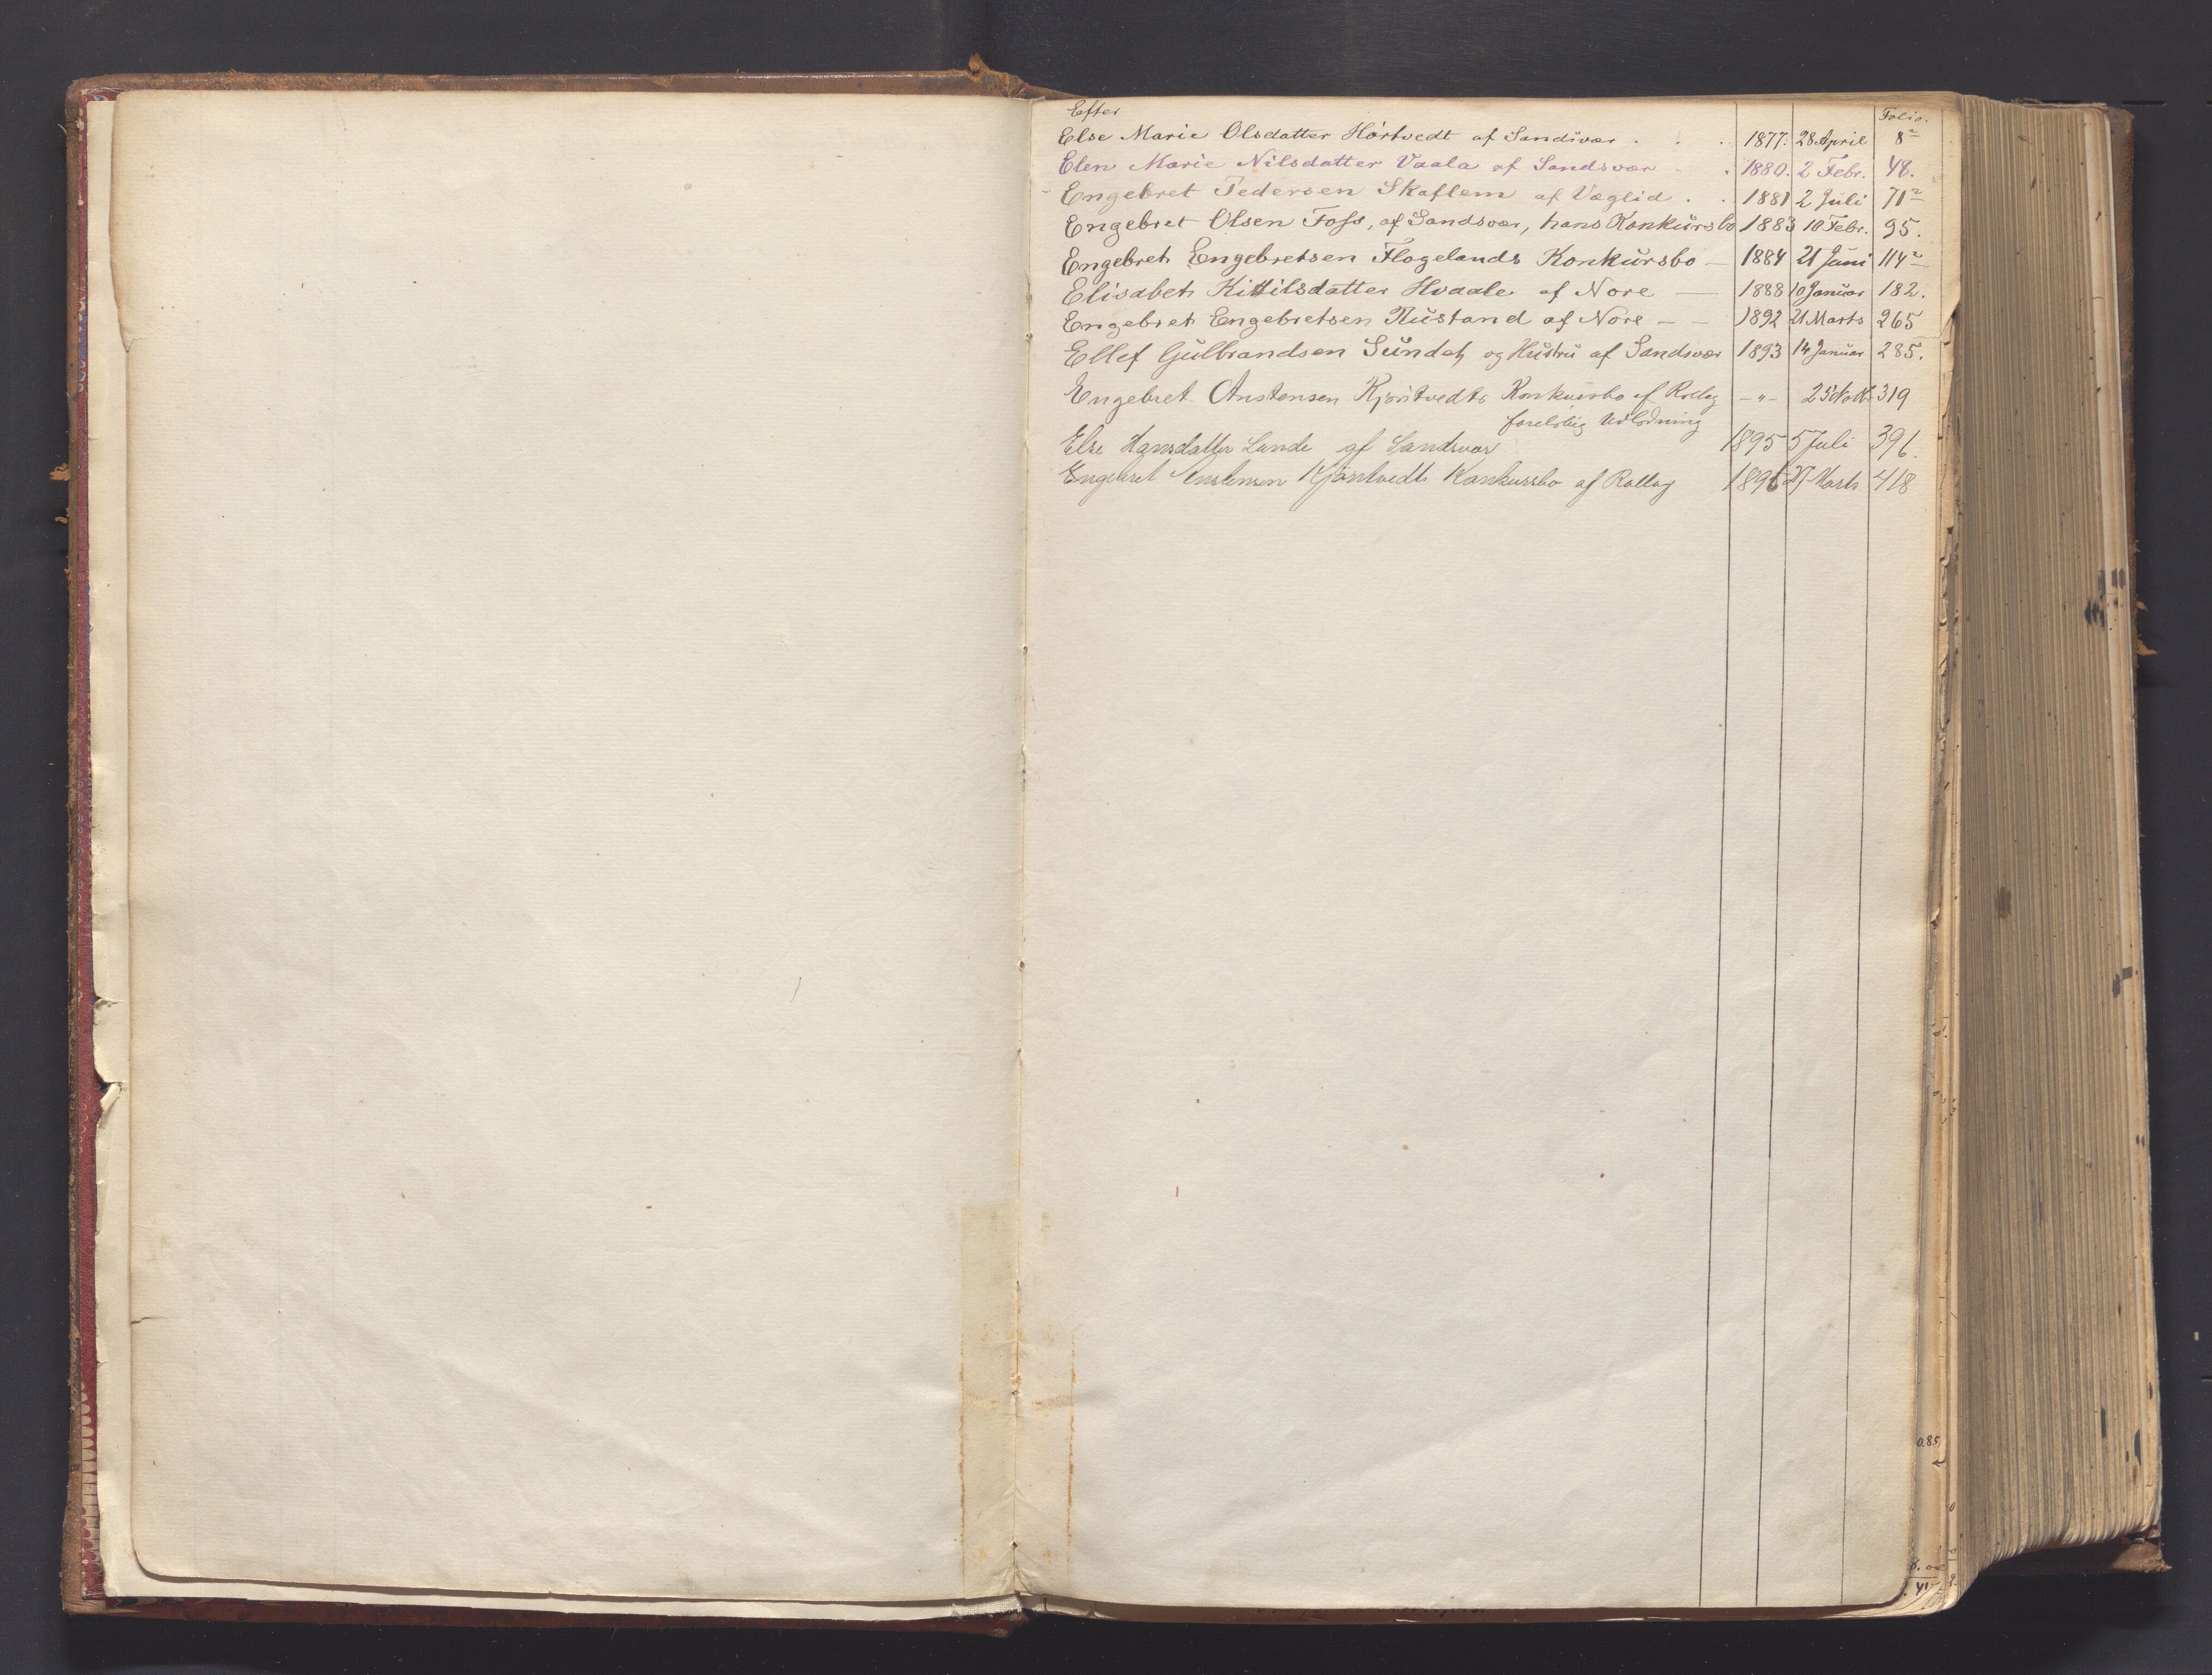 Efter Folio.
Else Marie Olsdatter Hørtvedt af Sandsvær . . . 1877. 28 April 8
Elen Marie Nilsdatter Vaala af Sandsvær - . 1880. 2 Febr. 48.
Engebret Pedersen Skaflem af Væglid . . 1881 2 Juli 71
Engebret Olsen Foss, af Sandsvær, hans Konkursbo 1883 10 Febr. 95.
Engebret Engebretsen Flogelands Konkursbo — 1884 21 Juni 114
Elisabet Kittilsdatter Hvaale af Nore — 1888 10 Januar 182.
Engebret Engebretsen Rustand af Nore — — 1892 21 Marts 265
Ellef Gulbrandsen Sundet og Hustru af Sandsvær 1893 14 Januar 285.
Engebret Anstensen Kjøntvedts Konkursbo af Rollag —„— 25 Novbr 319
foreløbig Udlodning
Else Hansdatter Lunde af Sandsvær 1895 5 Juli 396.
Engebret Anstensen Kjøntvedts Konkursbo af Rollag 1896 27 Marts 418
0.85